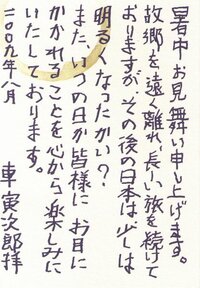 暑中お見舞い申し上げます。
故郷を遠く離れ、長い旅を続けて
おりますが、その後の日本は、少しは
明るくなったかい?
また、いつの日か皆様に お目に
かかれることを心から楽しみに
いたしております。
二〇〇九年八月
車 寅次郎拝